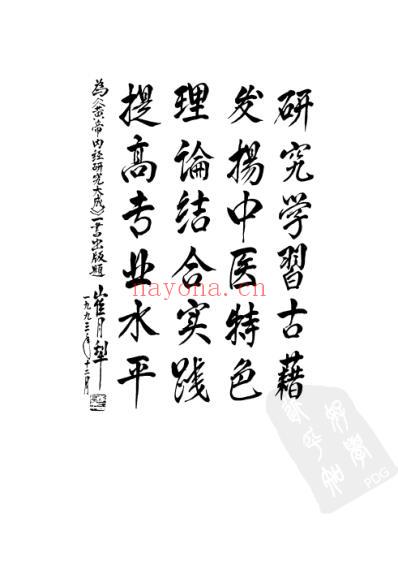 研究学習古藉
发揚中医特色
理論结合实践
提高专业水平
為《黄帝内经研究大成》一書出版題
崔月犁
一九九三年十二月
nayona.cn
PDG